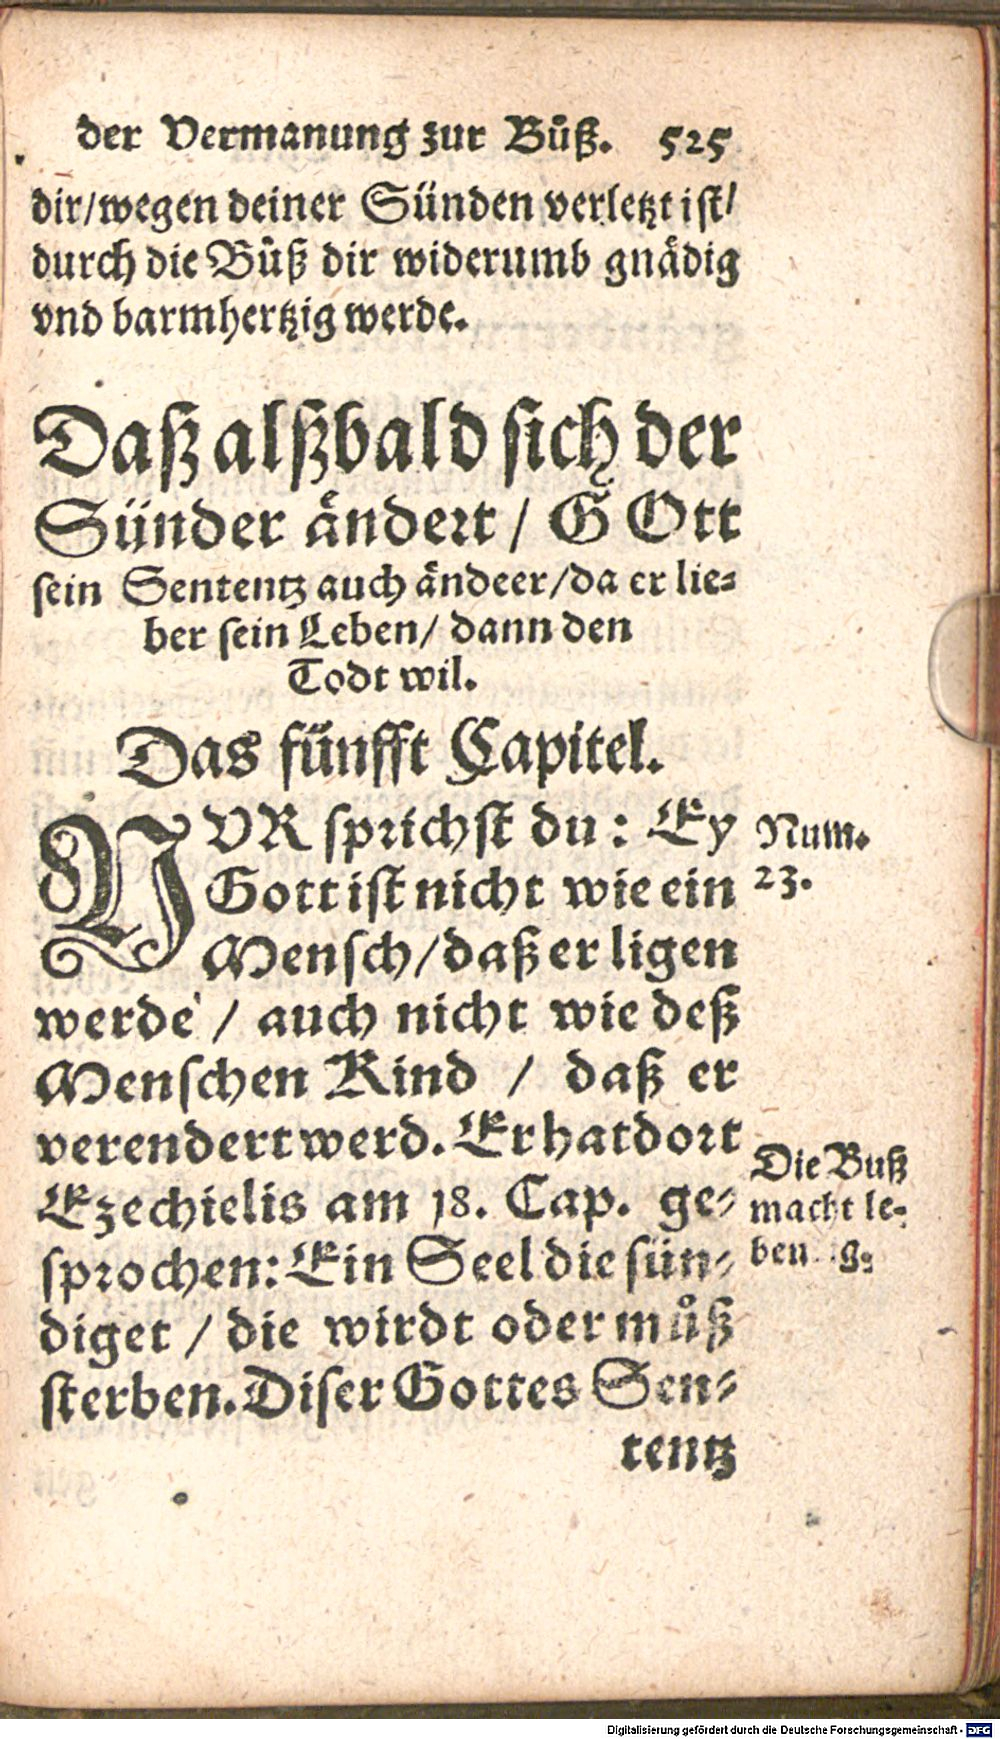 der Vermanung zur Bůß. 525
dir/wegen deiner Sünden verletzt ist/
durch die Bůß dir widerumb gnädig
vnd barmhertzig werde.
Daß alßbald sich der
Sünder ändert / GOtt
sein Sententz auch ändeer/da er lie⸗
ber sein Leben/ dann den
Todt wil.
Das fünfft Capitel.
NVR sprichst du: Ey
Gott ist nicht wie ein
Mensch/daß er ligen
werde / auch nicht wie deß
Menschen Kind / daß er
verendert werd. Er hat dort
Ezechielis am 18. Cap. ge⸗
sprochen: Ein Seel die sün⸗
diget / die wirdt oder můß
sterben. Diser Gottes Sen⸗
tentz
Num.
23.
Die Buß
macht le⸗
Digitalisierung gefördert durch die Deutsche Forschungsgemeinschaft - DFG